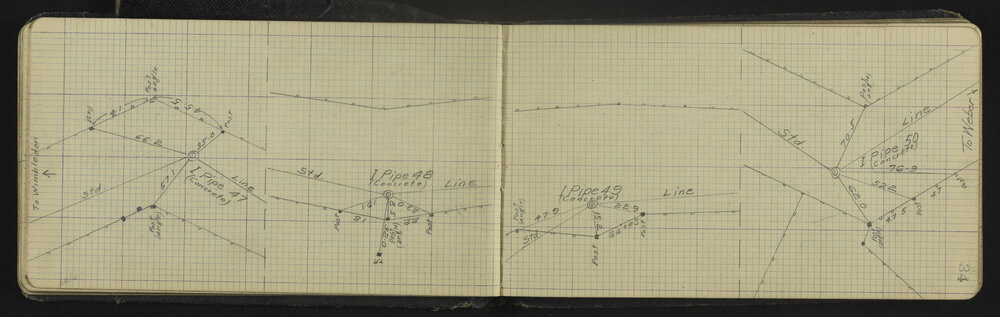 To Wimbledon
Std
Post (angle)
71
45.5
Post
66.2
35.0
57.1
Std
Line
I Pipe 47
(concrete)
Post (angle)
Std
I Pipe 48
(concrete)
Line
Post
18.1
18
22.0
Post (angle)
Post
20.0
I Pipe 49
(concrete)
Line
Post (angle)
47.9
Std
22.9
Post
Post
Std
Post (angle)
70.5
Line
I Pipe 50
(concrete)
76.9
52.8
62.0
47
47.5
Post
Post
Post (angle)
To Weber's
34